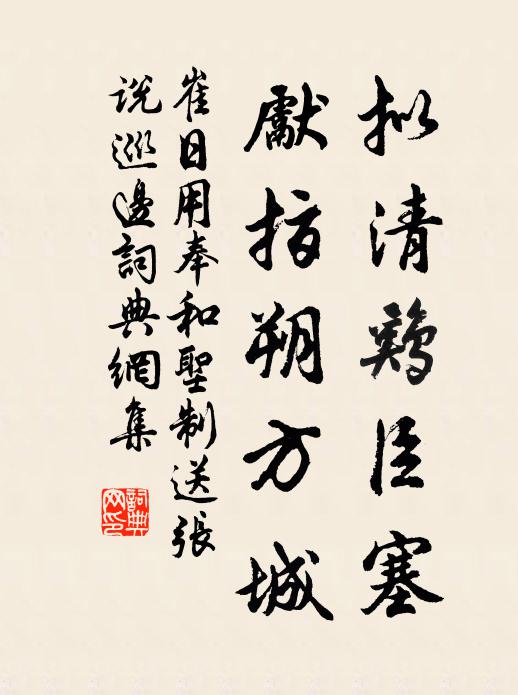 拟清鷄臣塞
獻指朔方城
崔日用奉和聖制送張
说巡邊詞典網集
詞典网印